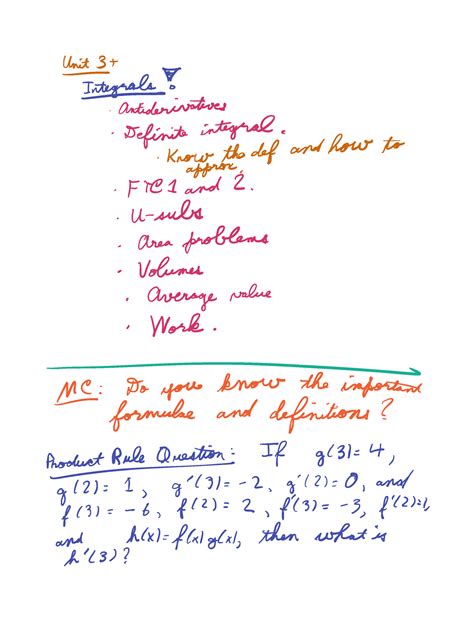 Unit 3+
Integrals!
· Antiderivatives
· Definite integral.
· Know the def and how to
approx.
· FTC1 and 2.
· U-subs
· Area problems
· Volumes
· Average value
· Work.
MC: Do you know the important
formulae and definitions?
Product Rule Question: If g(3)=4,
g(2)=1, g'(3)=-2, g'(2)=0, and
f(3)=-6, f(2)=2, f'(3)=-3, f'(2)=1,
and h(x)=f(x)g(x), then what is
h'(3)?